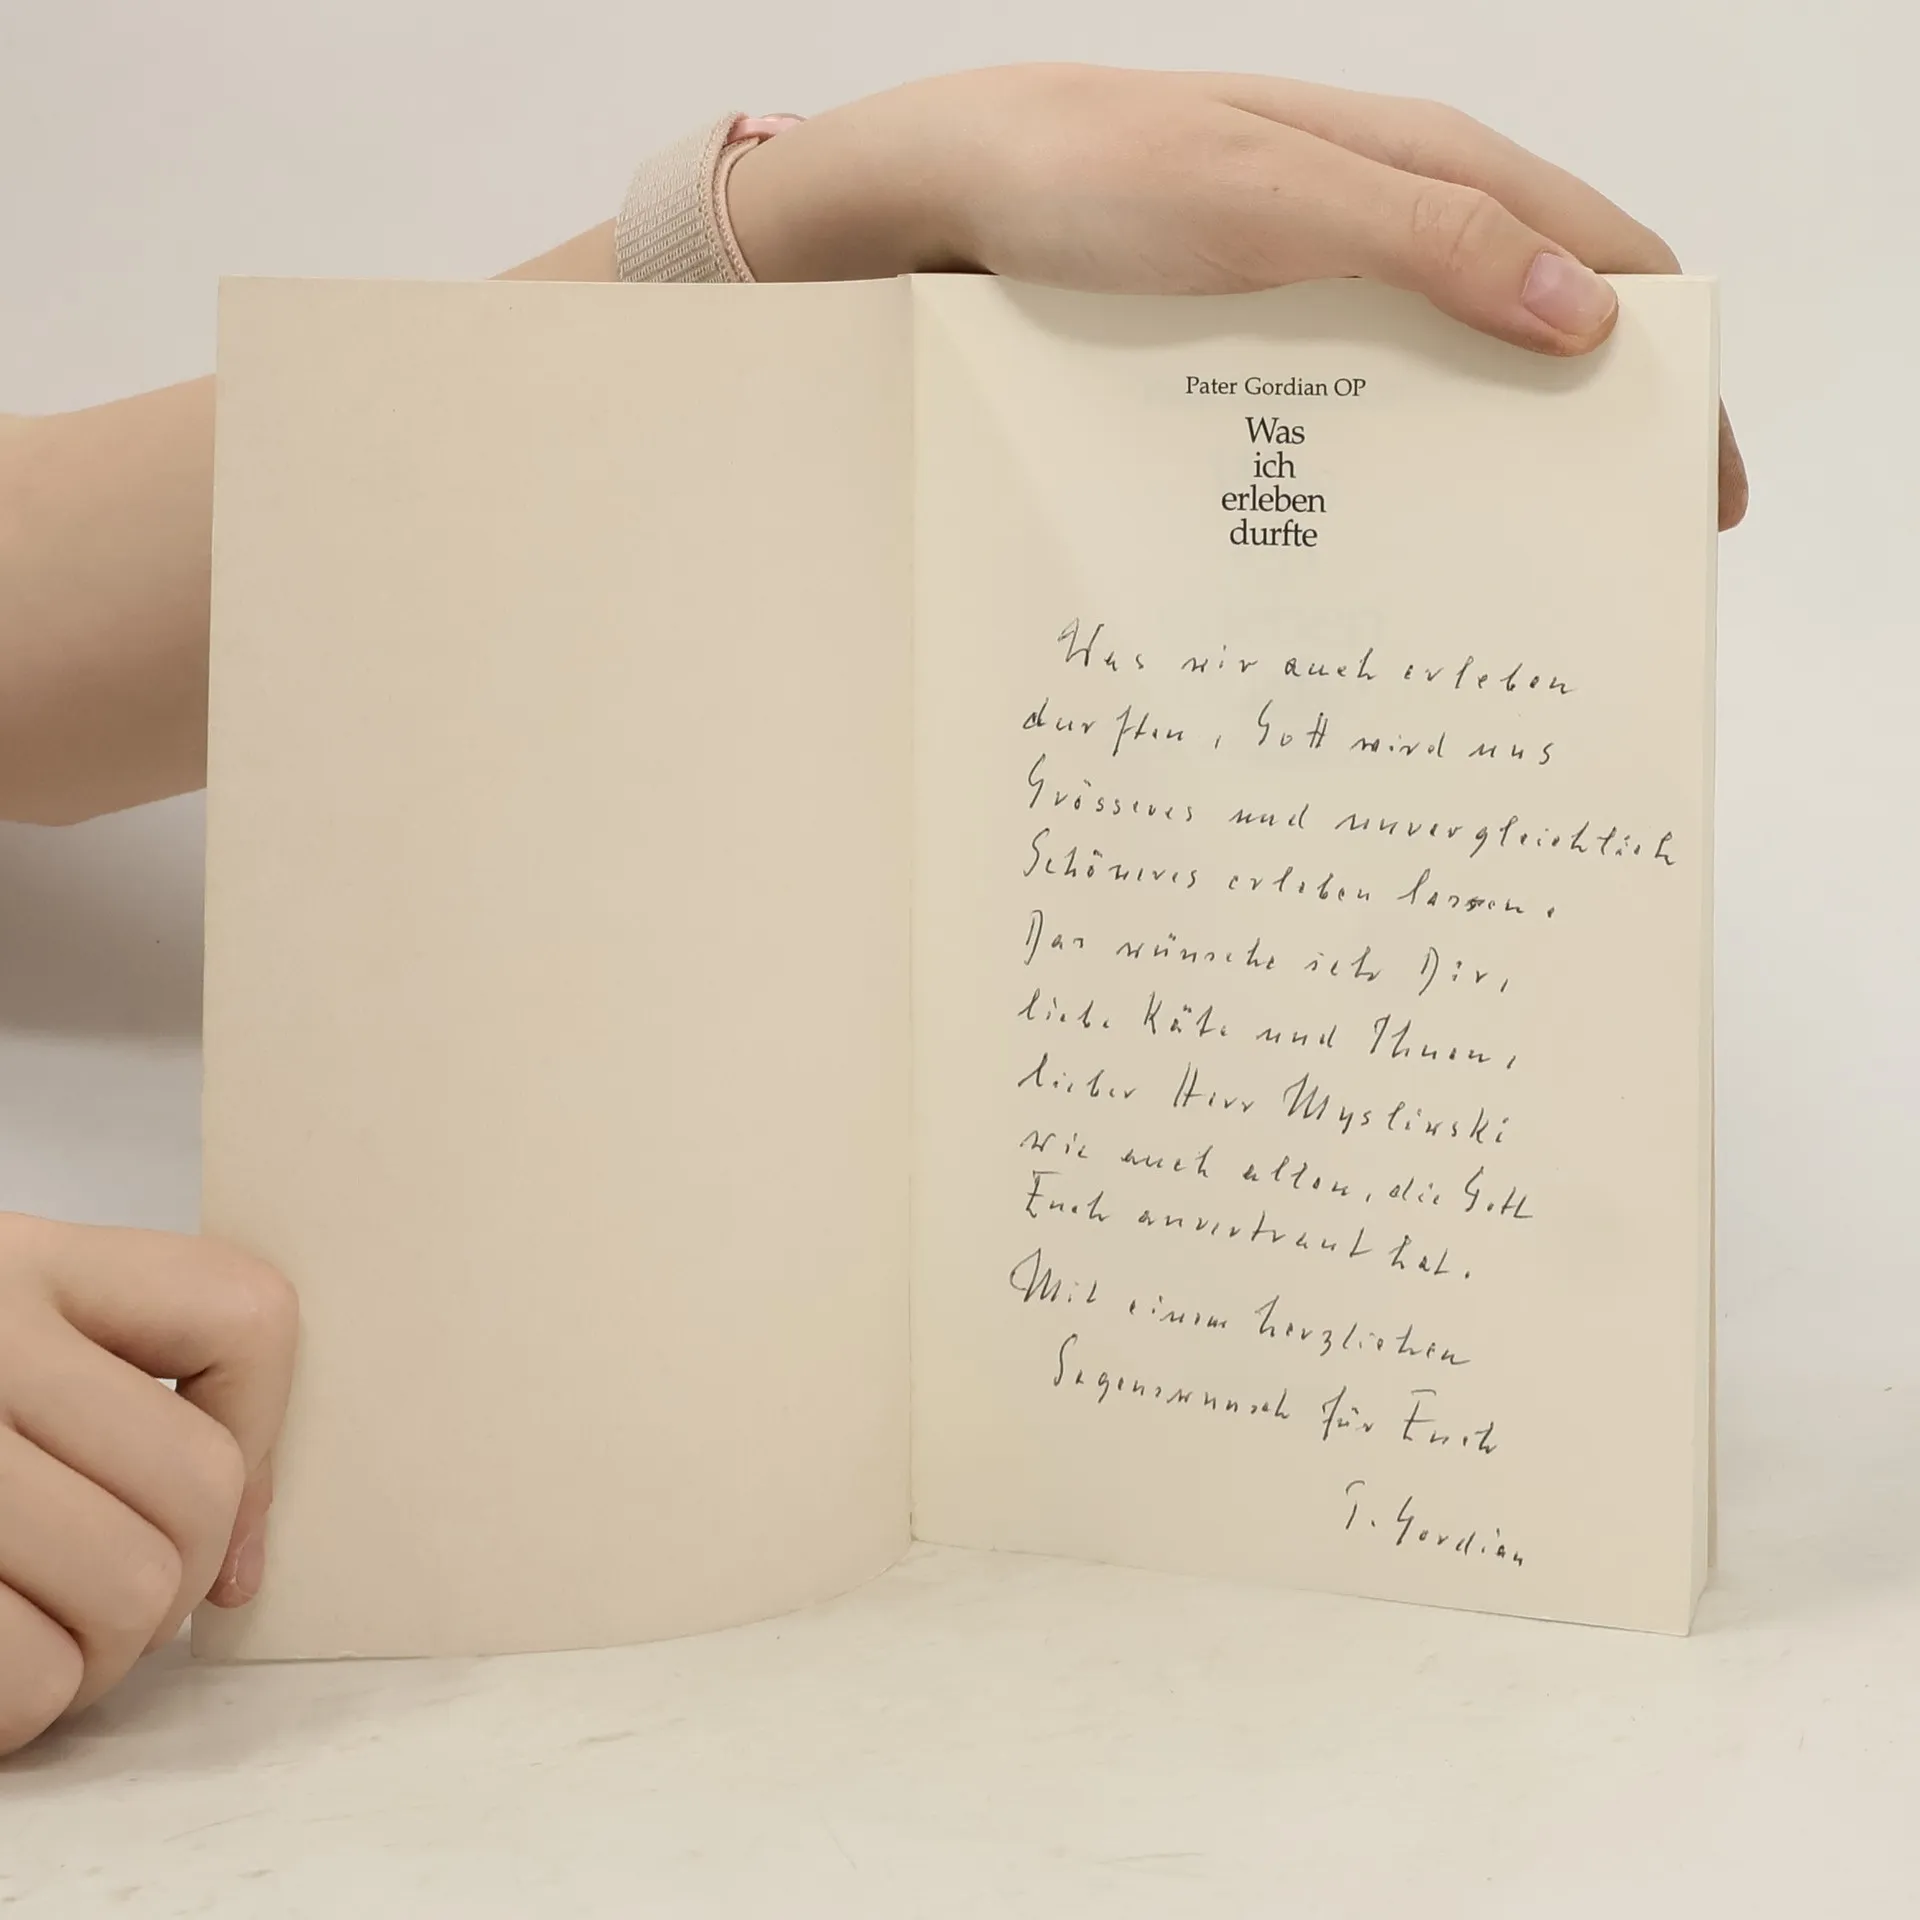 Pater Gordian OP
Was
ich
erleben
durfte
Was wir auch erleben
durften, Gott wird uns
Grösseres und unvergleichlich
Schöneres erleben lassen.
Das wünsche ich Dir,
liebe Käte und Ihnen,
lieber Herr Myslinski
wie auch allen, die Gott
Euch anvertraut hat.
Mit einem herzlichen
Segenswunsch für Euch
P. Gordian